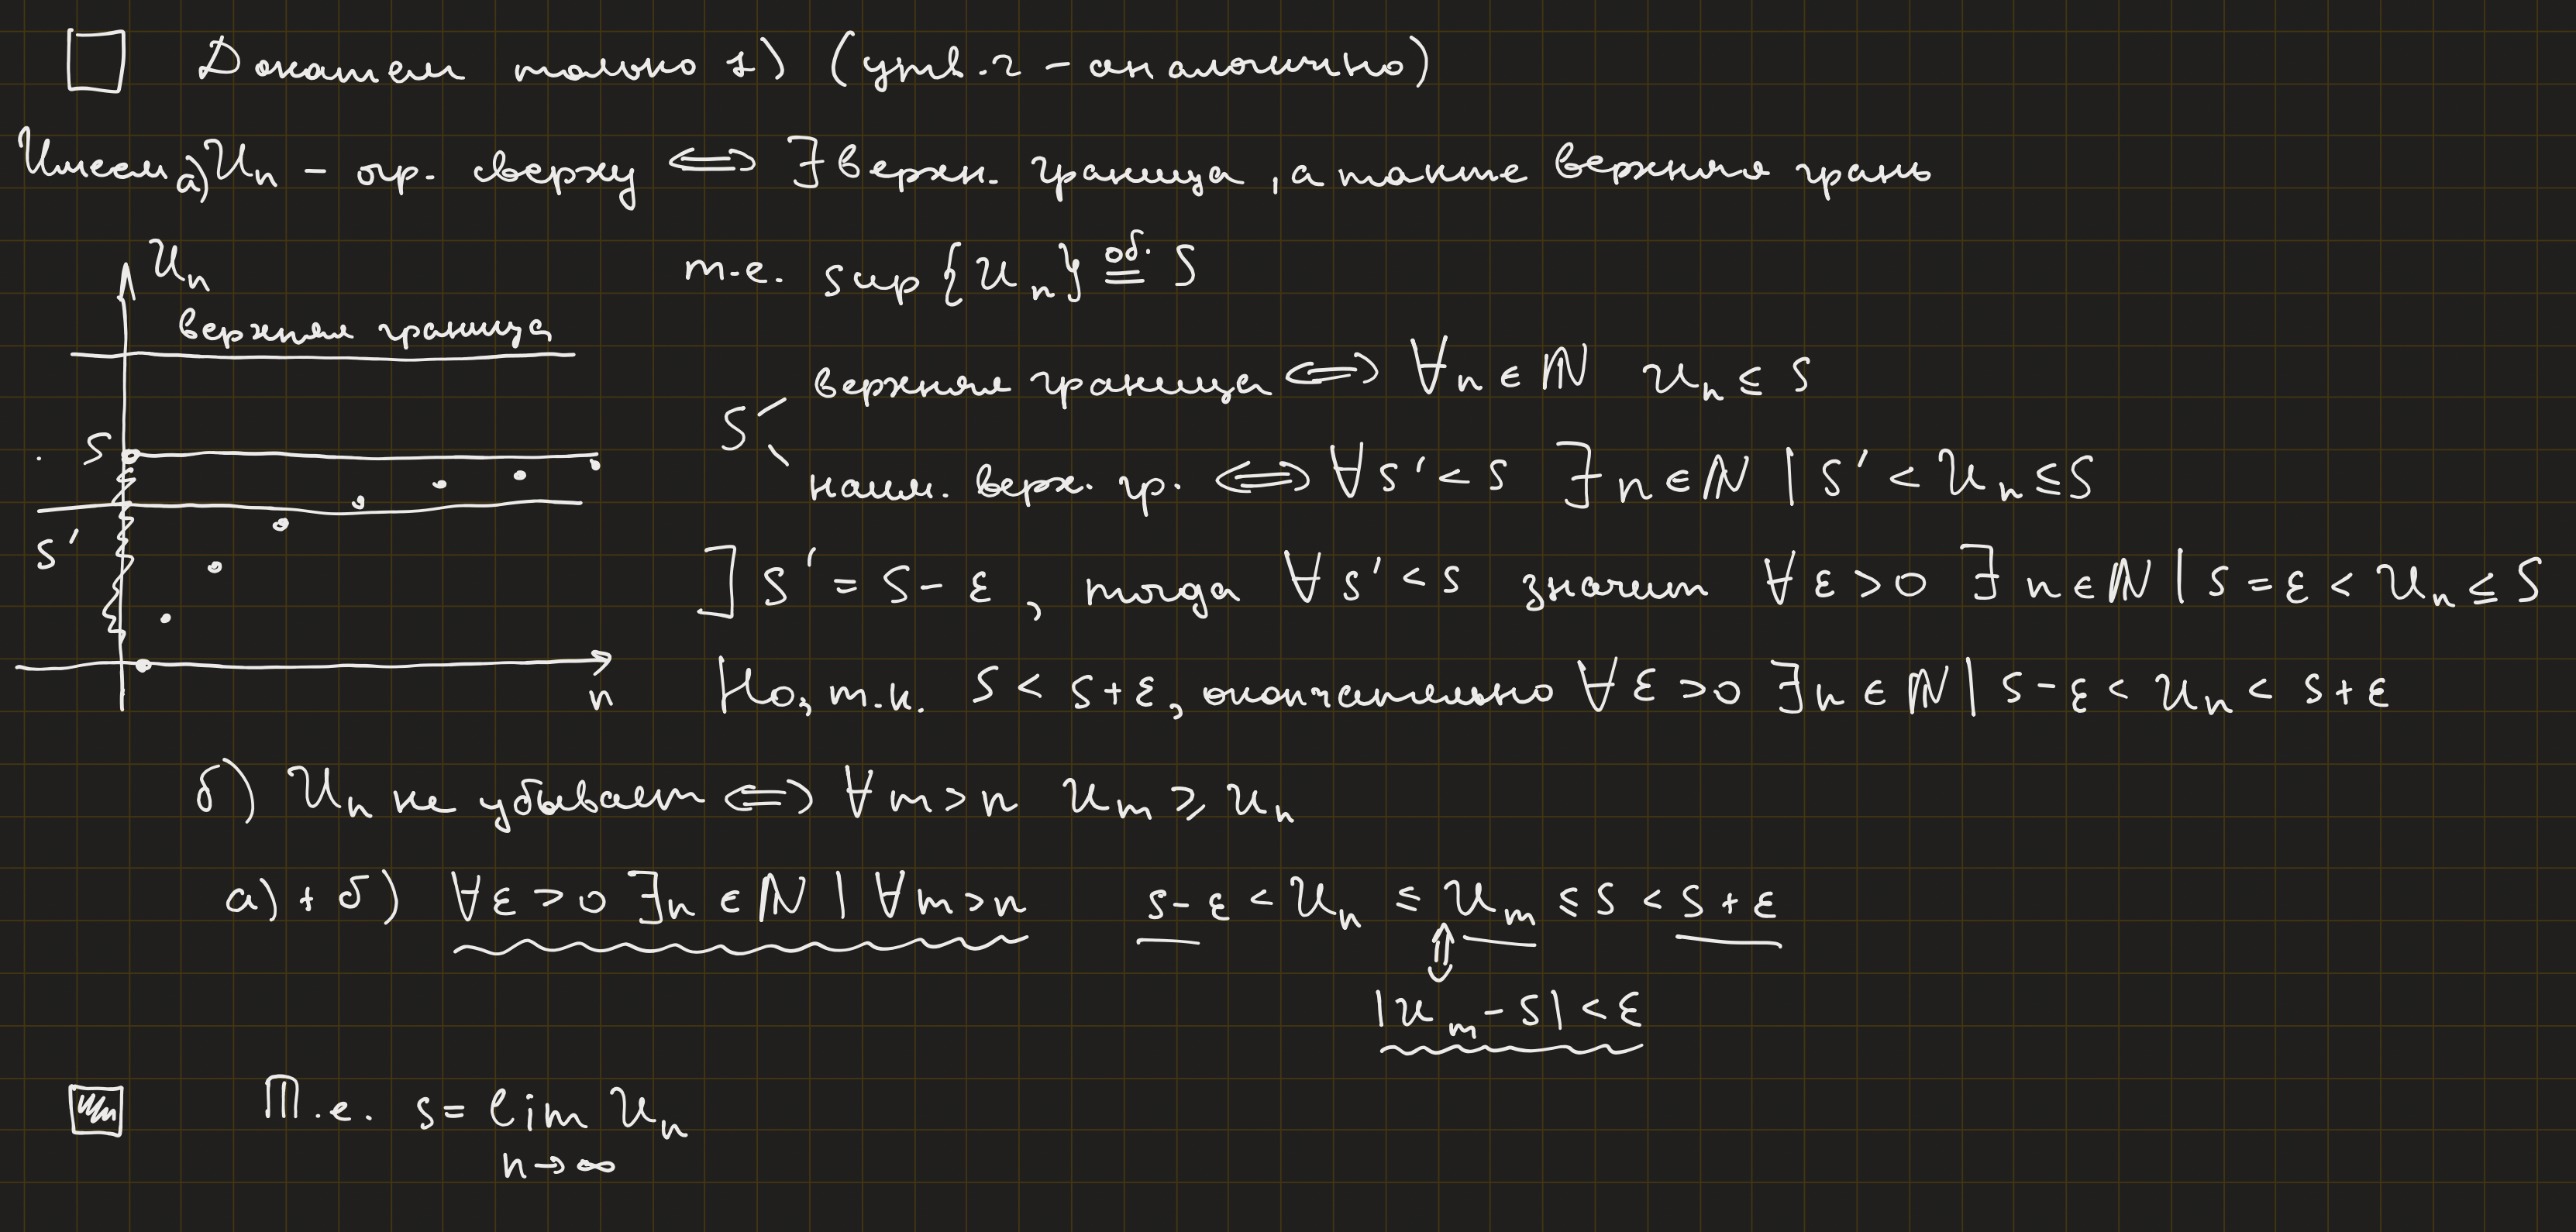 Докажем только 1) (утв. 2 - аналогично)
Имеем а) Un - огр. сверху ⟺ ∃ верхн. граница, а также верхняя грань
т.е. sup {Un} об.= S
Un
верхняя граница
S
S'
n
S
верхняя граница ⟺ ∀n ∈ ℕ Un ≤ S
наим. верх. гр. ⟺ ∀S' < S ∃n ∈ ℕ | S' < Un ≤ S
] S' = S - ε, тогда ∀S' < S значит ∀ε > 0 ∃n ∈ ℕ | S = ε < Un ≤ S
Но, т.к. S < S + ε, окончательно ∀ε > 0 ∃n ∈ ℕ | S - ε < Un < S + ε
б) Un не убывает ⟺ ∀m > n Um ≥ Un
а) + б) ∀ε > 0 ∃n ∈ ℕ | ∀m > n S - ε < Un ≤ Um ≤ S < S + ε
⇕
|Um - S| < ε
Т.е. S = lim Un
n → ∞